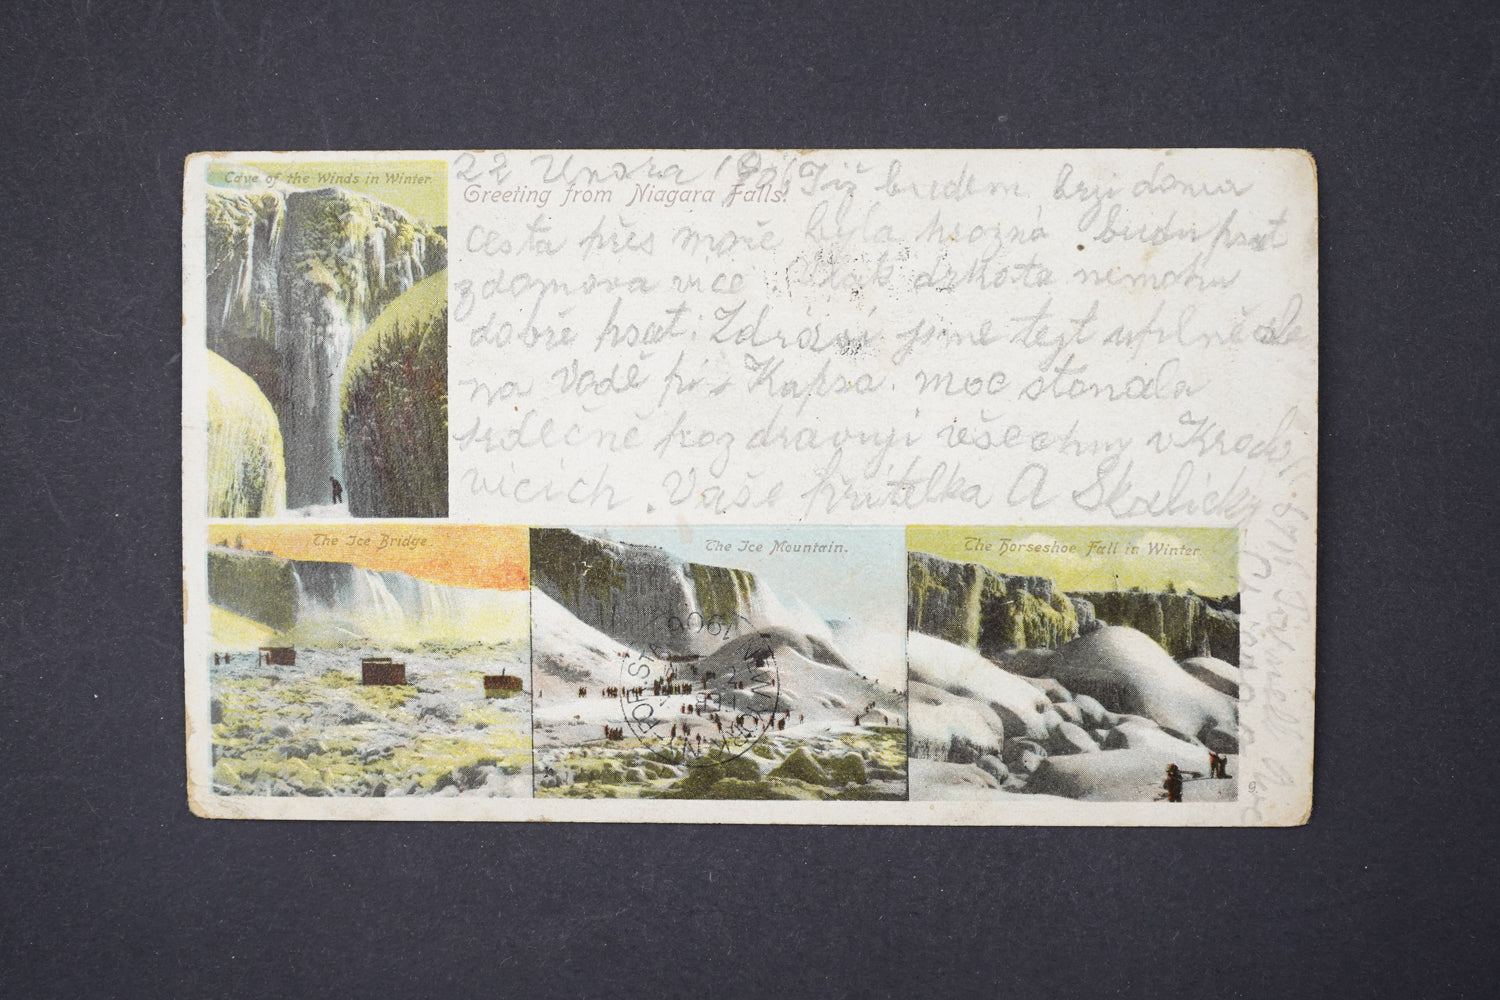 Cave of the Winds in Winter.
22 Unora 1906 Již budem brzi doma
Greeting from Niagara Falls!
cesta přes moře byla hrozná budu psat
z domova vice. Vlak drkota nemohu
dobře psat. Zdrávi jsme teyt uplně ale
na vodě pi s Kapsa. moc stonala
srdečně pozdravuji všechny v
vicich. Vaše přitelka A Skalicky
The Ice Bridge
The Ice Mountain.
The Horseshoe Fall in Winter.
1906
9.